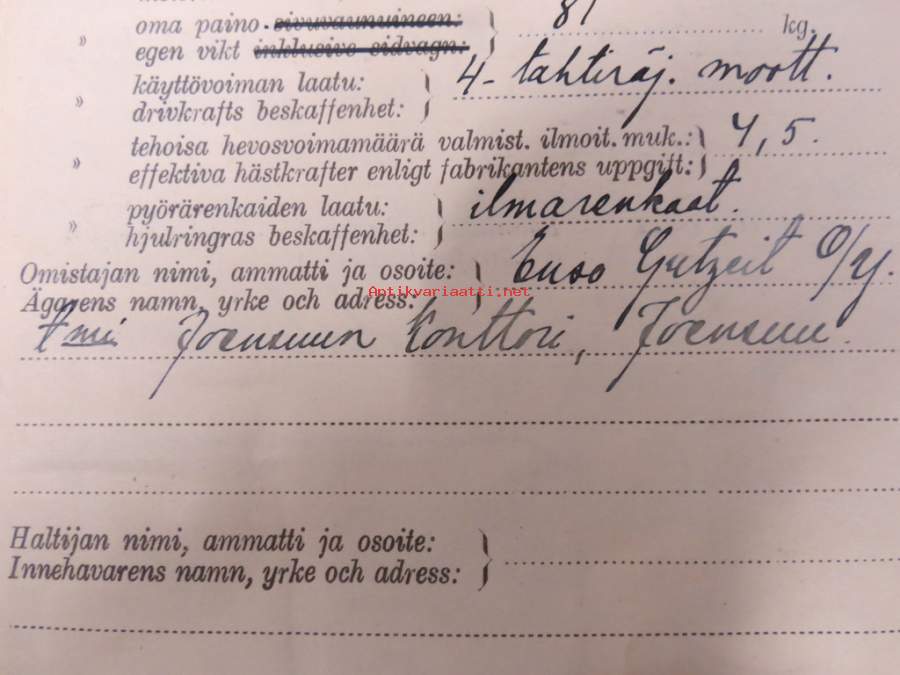 » oma paino sivuvaunuineen: 81 kg.
egen vikt inklusive sidvagn:
» käyttövoiman laatu: 4-tahtiräj. moott.
drivkrafts beskaffenhet:
» tehoisa hevosvoimamäärä valmist. ilmoit. muk.: 4,5.
effektiva hästkrafter enligt fabrikantens uppgift:
» pyörärenkaiden laatu: ilmarenkaat.
hjulringras beskaffenhet:
Omistajan nimi, ammatti ja osoite: Enso Gutzeit O/Y.
Ägarens namn, yrke och adress:
Antikvariaatti.net
Joensuun Konttori, Joensuu.
Haltijan nimi, ammatti ja osoite:
Innehavarens namn, yrke och adress: